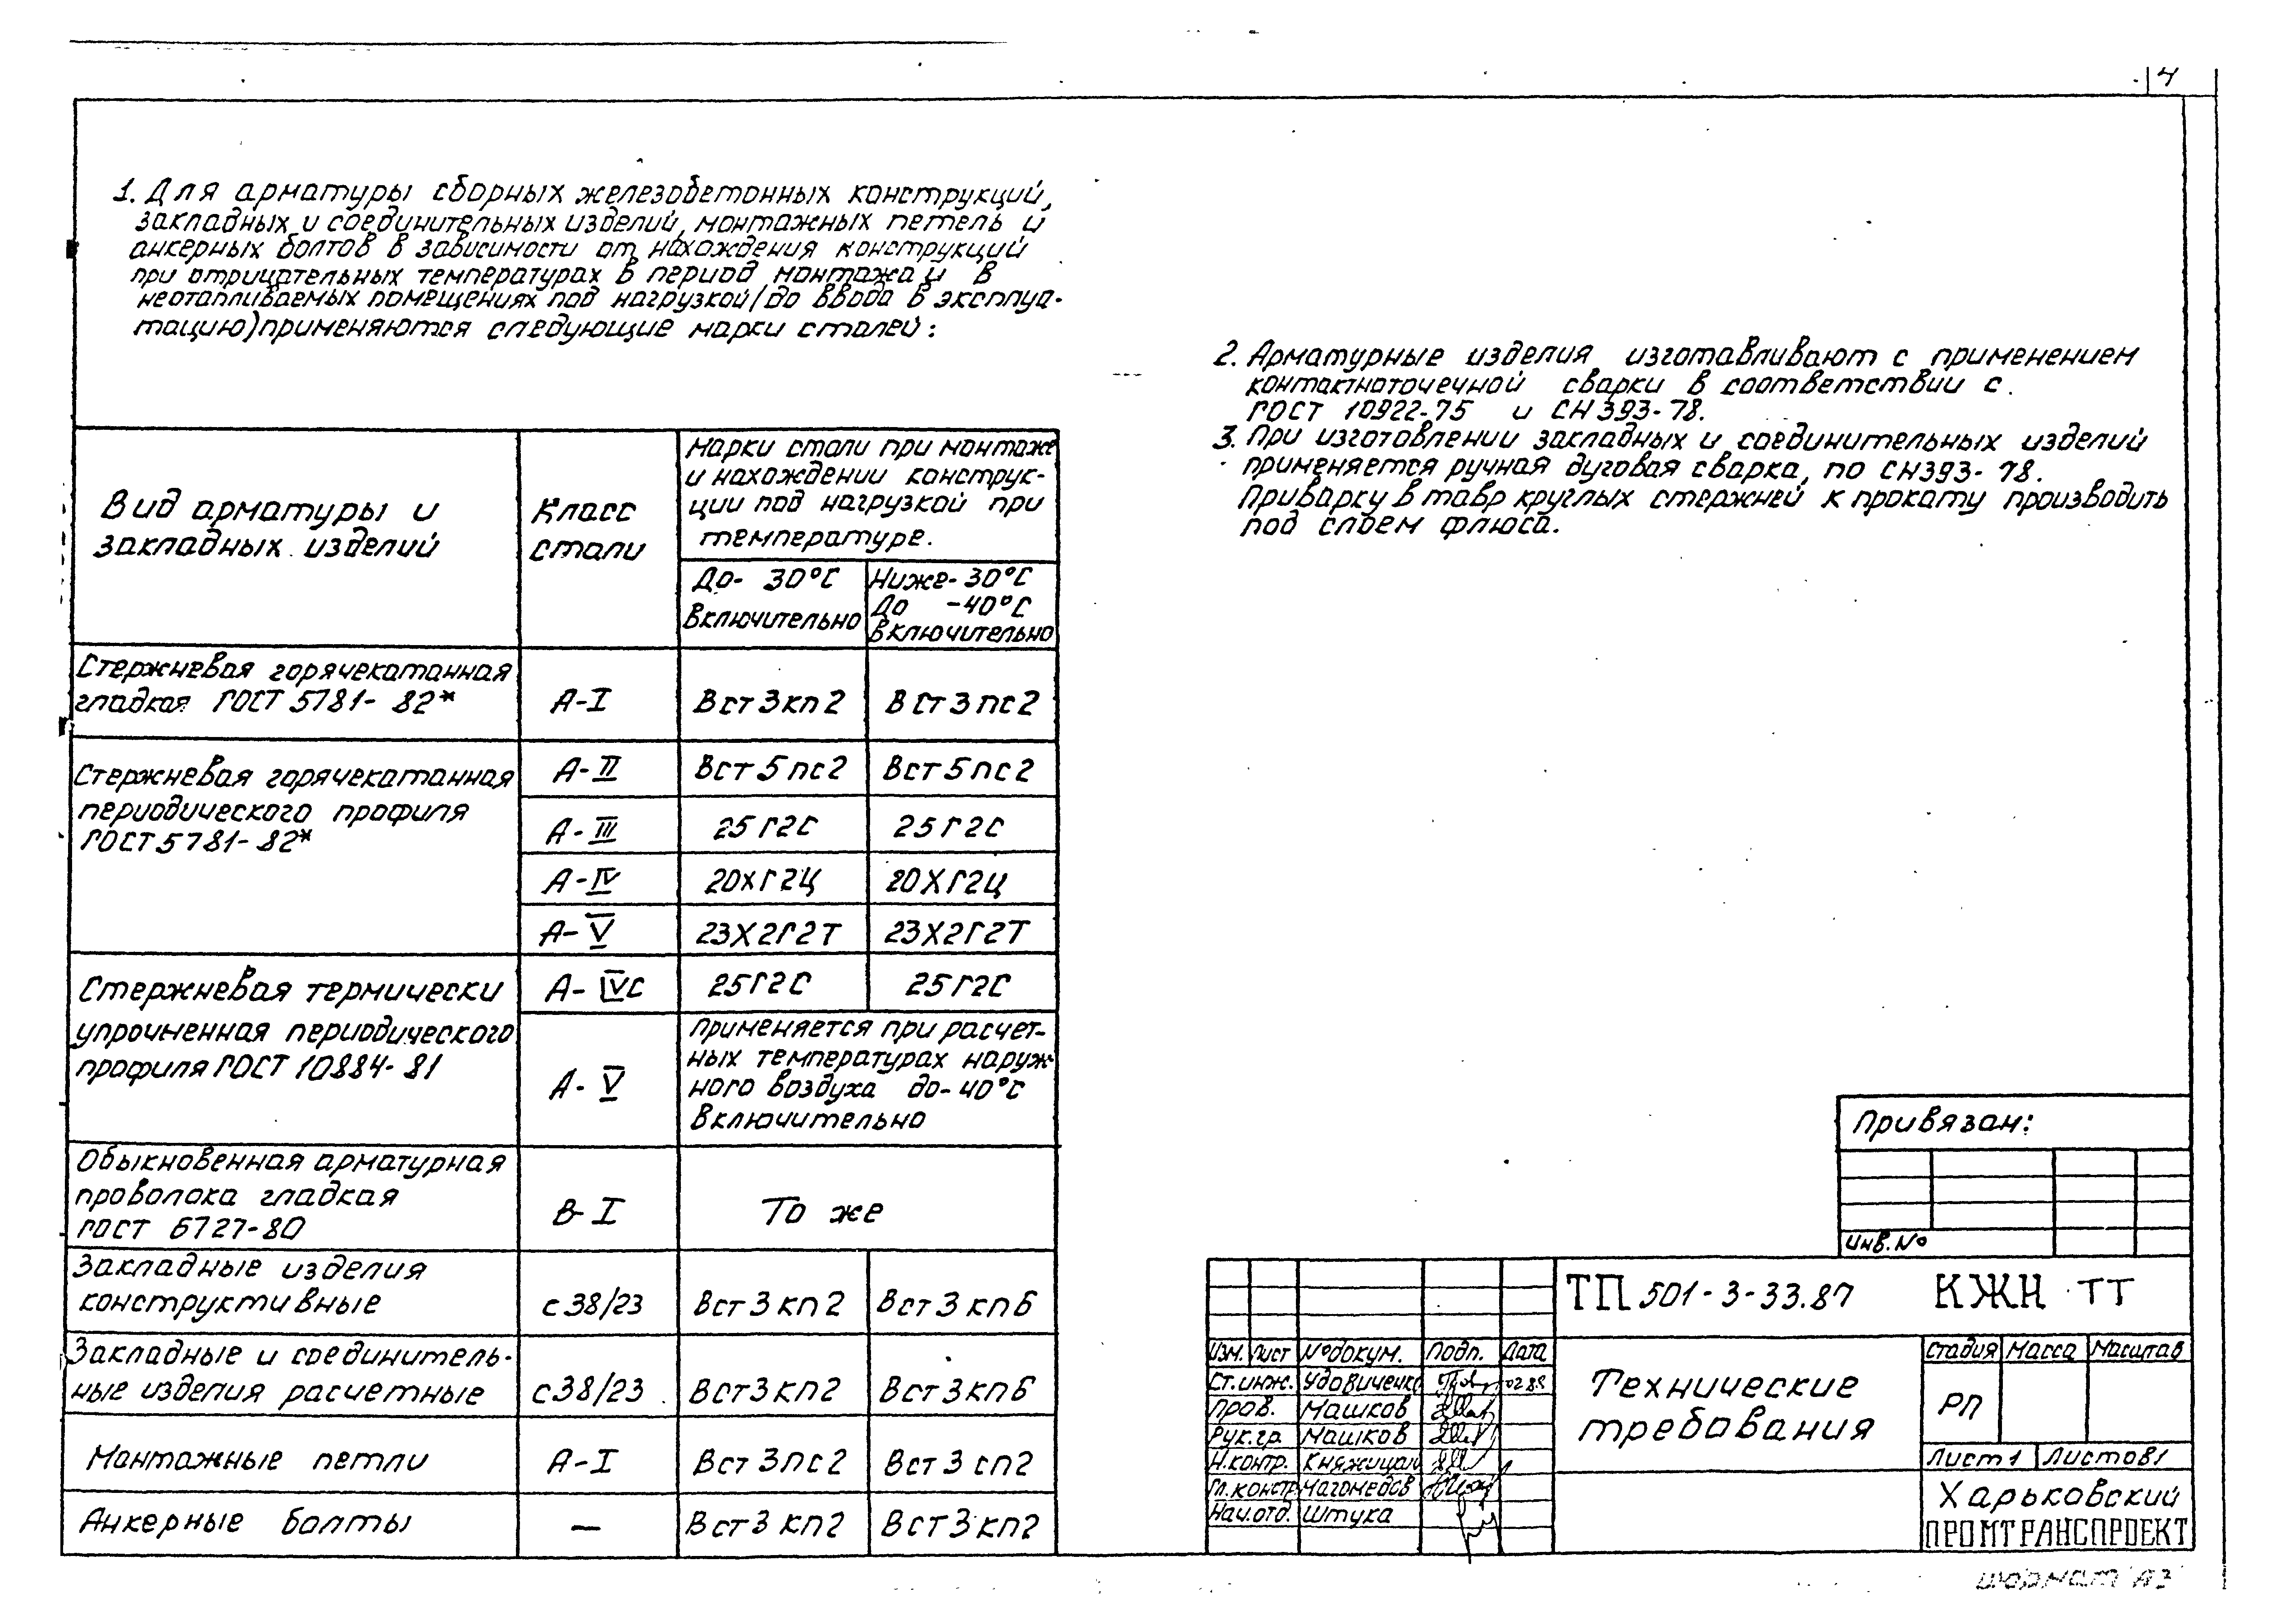 4
1. Для арматуры сборных железобетонных конструкций,
закладных и соединительных изделий, монтажных петель и
анкерных болтов в зависимости от нахождения конструкций
при отрицательных температурах в период монтажа и в
неотапливаемых помещениях под нагрузкой/до ввода в эксплуа-
тацию) применяются следующие марки сталей:
Вид арматуры и
закладных изделий
Класс
стали
Марки стали при монтаже
и нахождении конструк-
ции под нагрузкой при
температуре.
До- 30°С
включительно
Ниже- 30°С
До -40°С
включительно
Стержневая горячекатанная
гладкая ГОСТ 5781- 82*
А-I
Вст3кп2
Вст3пс2
Стержневая горячекатанная
периодического профиля
ГОСТ 5781-82*
А-II
Вст5пс2
Вст5пс2
А-III
25Г2С
25Г2С
А-IV
20ХГ2Ц
20ХГ2Ц
А-V
23Х2Г2Т
23Х2Г2Т
Стержневая термически
упрочненная периодического
профиля ГОСТ 10884-81
А-IVС
25Г2С
25Г2С
А-V
Применяется при расчет-
ных температурах наруж-
ного воздуха до-40°С
включительно
Обыкновенная арматурная
проволока гладкая
ГОСТ 6727-80
В-I
То же
Закладные изделия
конструктивные
с38/23
Вст3кп2
Вст3кп6
Закладные и соединитель-
ные изделия расчетные
с38/23
Вст3кп2
Вст3кп6
Монтажные петли
А-I
Вст3пс2
Вст3сп2
Анкерные болты
—
Вст3кп2
Вст3кп2
2. Арматурные изделия изготавливают с применением
контактноточечной сварки в соответствии с
ГОСТ 10922-75 и СН393-78.
3. При изготовлении закладных и соединительных изделий
применяется ручная дуговая сварка, по СН393-78.
Приварку в тавр круглых стержней к прокату производить
под слоем флюса.
Привязан:
Инв.№
ТП 501-3-33.87 КЖН ТТ
Изм. Лист №докум. Подп. Дата
Ст.инж. Удовиченко
Пров. Машков
Рук.гр. Машков
Н.контр.
Гл.констр Магомедов
Нач.отд. Штука
Технические
требования
Стадия Масса Масштаб
РП
Лист 1 Листов 1
Харьковский
ПРОМТРАНСПРОЕКТ
Формат А3